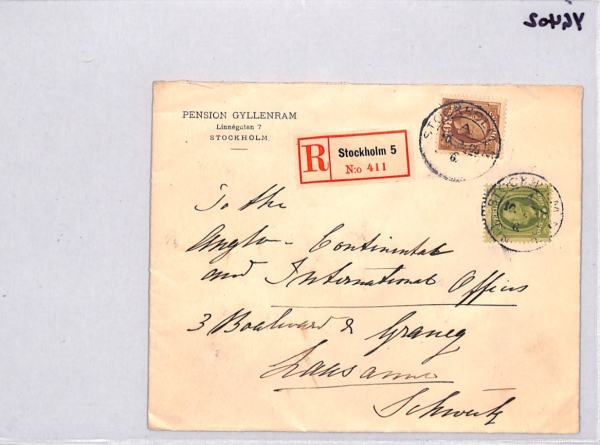 PENSION GYLLENRAM
Linnégatan 7
STOCKHOLM.
R
Stockholm 5
N:o 411
To the
Anglo-Continental
and International Offices
3 Boulevard de Grancy
Lausanne
Schweitz